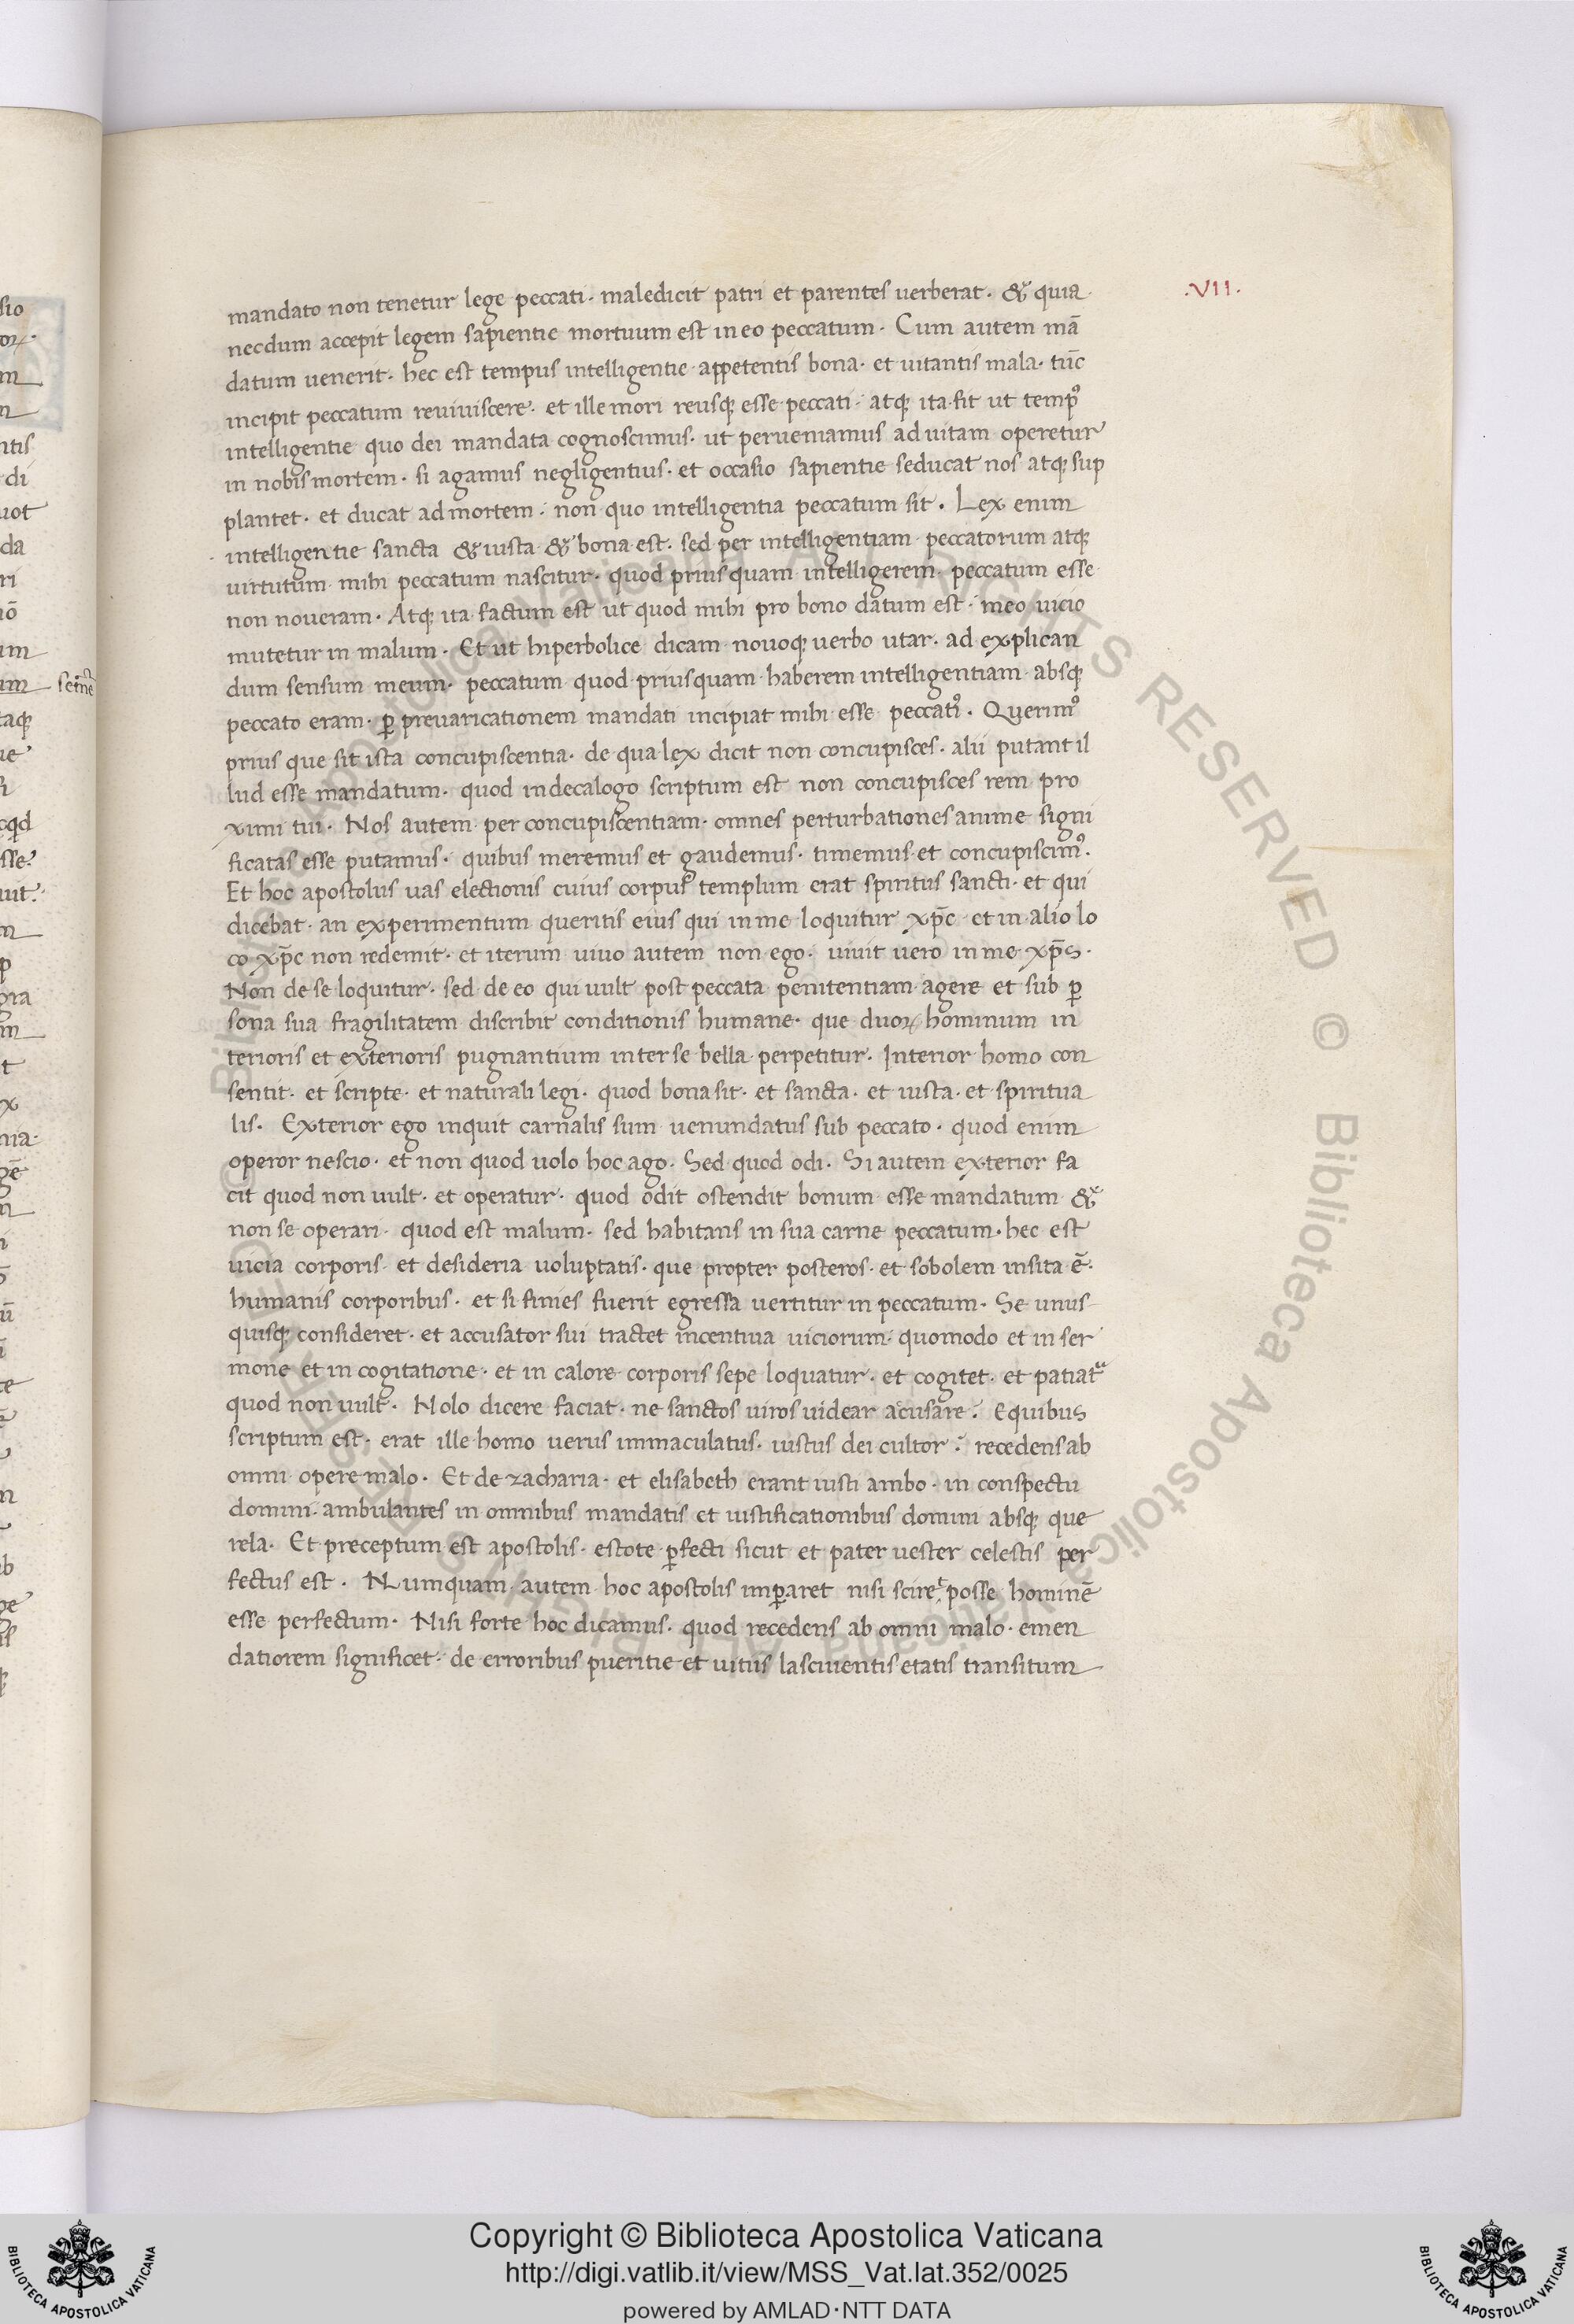 .VII.
mandato non tenetur lege peccati · maledicit patri et parentes uerberat · & quia
necdum accepit legem sapientie mortuum est in eo peccatum · Cum autem mā
datum uenerit · hec est tempus intelligentie appetentis bona · et uitantis mala · tūc
incipit peccatum reuiuiscere · et ille mori reusqꝫ esse peccati · atqꝫ ita fit ut tempꝰ
intelligentie quo dei mandata cognoscimus · ut perueniamus ad uitam operetur
in nobis mortem · si agamus negligentius · et occasio sapientie seducat nos atqꝫ sup
plantet · et ducat ad mortem · non quo intelligentia peccatum sit . Lex enim
intelligentie sancta & iusta & bona est · sed per intelligentiam peccatorum atqꝫ
uirtutum mihi peccatum nascitur · quod prius quam intelligerem peccatum esse
non noueram · Atqꝫ ita factum est ut quod mihi pro bono datum est · meo uicio
mutetur in malum · Et ut hiperbolice dicam nouoqꝫ uerbo utar · ad explican
dum sensum meum · peccatum quod priusquam haberem intelligentiam absqꝫ
peccato eram · ꝑ preuaricationem mandati incipiat mihi esse peccatꝰ . Querimꝰ
prius que sit ista concupiscentia · de qua lex dicit non concupisces · alii putant il
lud esse mandatum · quod in decalogo scriptum est non concupisces rem pro
ximi tui · Nos autem per concupiscentiam · omnes perturbationes anime signi
ficatas esse putamus · quibus meremus et gaudemus · timemus et concupiscimꝰ .
Et hoc apostolus uas electionis cuius corpus templum erat spiritus sancti · et qui
dicebat · an experimentum queritis eius qui in me loquitur xp̄c et in alio lo
co xp̄c non redemit · et iterum uiuo autem non ego · uiuit uero in me xp̄s ·
Non de se loquitur · sed de eo qui uult post peccata penitentiam agere et sub ꝑ
sona sua fragilitatem discribit conditionis humane · que duoꝝ hominum in
terioris et exterioris pugnantium inter se bella perpetitur . Interior homo con
sentit · et scripte · et naturali legi · quod bona sit · et sancta · et iusta · et spiritua
lis . Exterior ego inquit carnalis sum uenundatus sub peccato · quod enim
operor nescio · et non quod uolo hoc ago · Sed quod odi · Si autem exterior fa
cit quod non uult · et operatur · quod odit ostendit bonum esse mandatum &
non se operari · quod est malum · sed habitans in sua carne peccatum · hec est
uicia corporis · et desideria uoluptatis · que propter posteros · et sobolem insita ē ·
humanis corporibus · et si fines fuerit egressa uertitur in peccatum · Se unus-
quisqꝫ consideret · et accusator sui tractet incentiua uiciorum · quomodo et in ser
mone et in cogitatione · et in calore corporis sepe loquatur · et cogitet · et patiat
quod non uult · Nolo dicere faciat · ne sanctos uiros uidear acusare . Equibus
scriptum est · erat ille homo uerus immaculatus · iustus dei cultor . recedens ab
omni opere malo · Et de zacharia · et elisabeth erant iusti ambo · in conspectu
domini · ambulantes in omnibus mandatis et iustificationibus domini absqꝫ que
rela · Et preceptum est apostolis · estote ꝑfecti sicut et pater uester celestis per
fectus est · Numquam autem hoc apostolis imꝑaret nisi sciret posse hominē
esse perfectum · Nisi forte hoc dicamus · quod recedens ab omni malo · emen
datiorem significet · de erroribus pueritie et uitiis lasciuientis etatis transitum
Copyright © Biblioteca Apostolica Vaticana
http://digi.vatlib.it/view/MSS_Vat.lat.352/0025
powered by AMLAD·NTT DATA
BIBLIOTECA APOSTOLICA VATICANA
BIBLIOTECA APOSTOLICA VATICANA